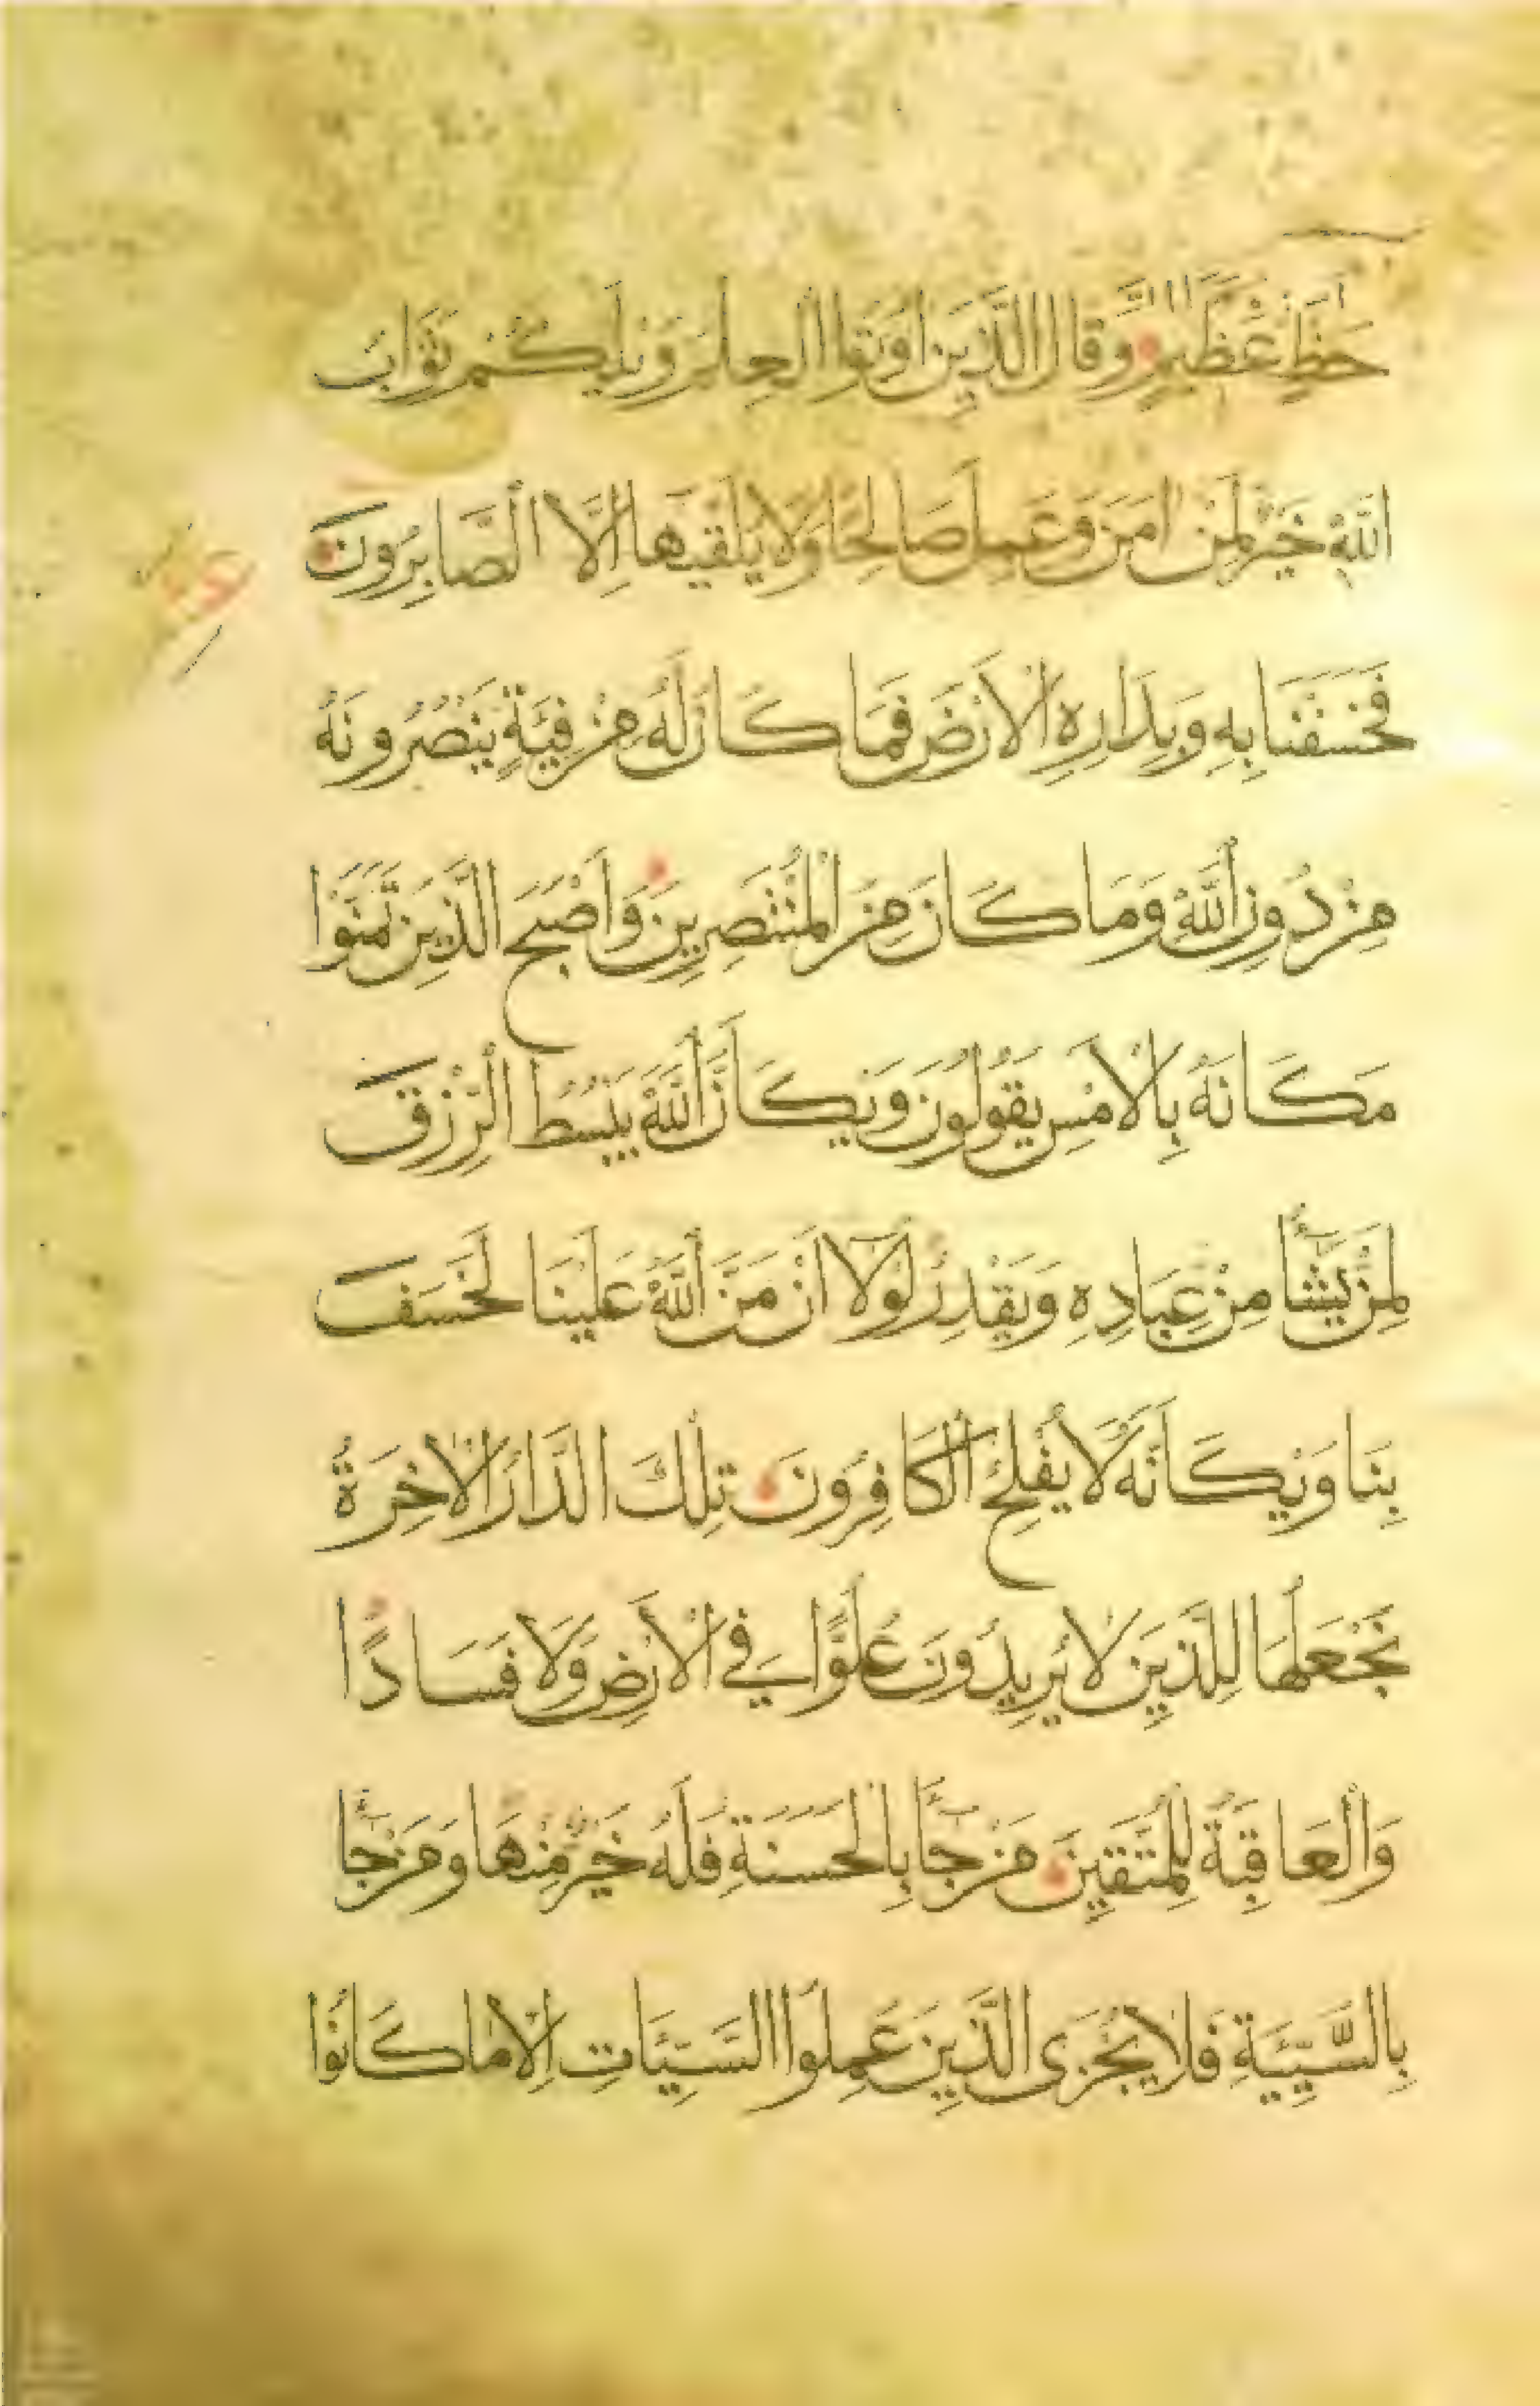 حَظٍّ عَظِيمٍ وَقَالَ الَّذِينَ اُوتُوا الْعِلْمَ وَيْلَكُمْ ثَوَابُ
اللّٰهِ خَيْرٌ لِمَنْ اٰمَنَ وَعَمِلَ صَالِحًا وَلَا يُلَقّٰيهَا اِلَّا الصَّابِرُونَ
فَخَسَفْنَا بِهِ وَبِدَارِهِ الْاَرْضَ فَمَا كَانَ لَهُ مِنْ فِئَةٍ يَنْصُرُونَهُ
مِنْ دُونِ اللّٰهِ وَمَا كَانَ مِنَ الْمُنْتَصِرِينَ وَاَصْبَحَ الَّذِينَ تَمَنَّوْا
مَكَانَهُ بِالْاَمْسِ يَقُولُونَ وَيْكَاَنَّ اللّٰهَ يَبْسُطُ الرِّزْقَ
لِمَنْ يَشَآءُ مِنْ عِبَادِهِ وَيَقْدِرُ لَوْلَآ اَنْ مَنَّ اللّٰهُ عَلَيْنَا لَخَسَفَ
بِنَا وَيْكَاَنَّهُ لَا يُفْلِحُ الْكَافِرُونَ تِلْكَ الدَّارُ الْاٰخِرَةُ
نَجْعَلُهَا لِلَّذِينَ لَا يُرِيدُونَ عُلُوًّا فِي الْاَرْضِ وَلَا فَسَادًا
وَالْعَاقِبَةُ لِلْمُتَّقِينَ مَنْ جَآءَ بِالْحَسَنَةِ فَلَهُ خَيْرٌ مِنْهَا وَمَنْ جَآءَ
بِالسَّيِّئَةِ فَلَا يُجْزَى الَّذِينَ عَمِلُوا السَّيِّئَاتِ اِلَّا مَا كَانُوا